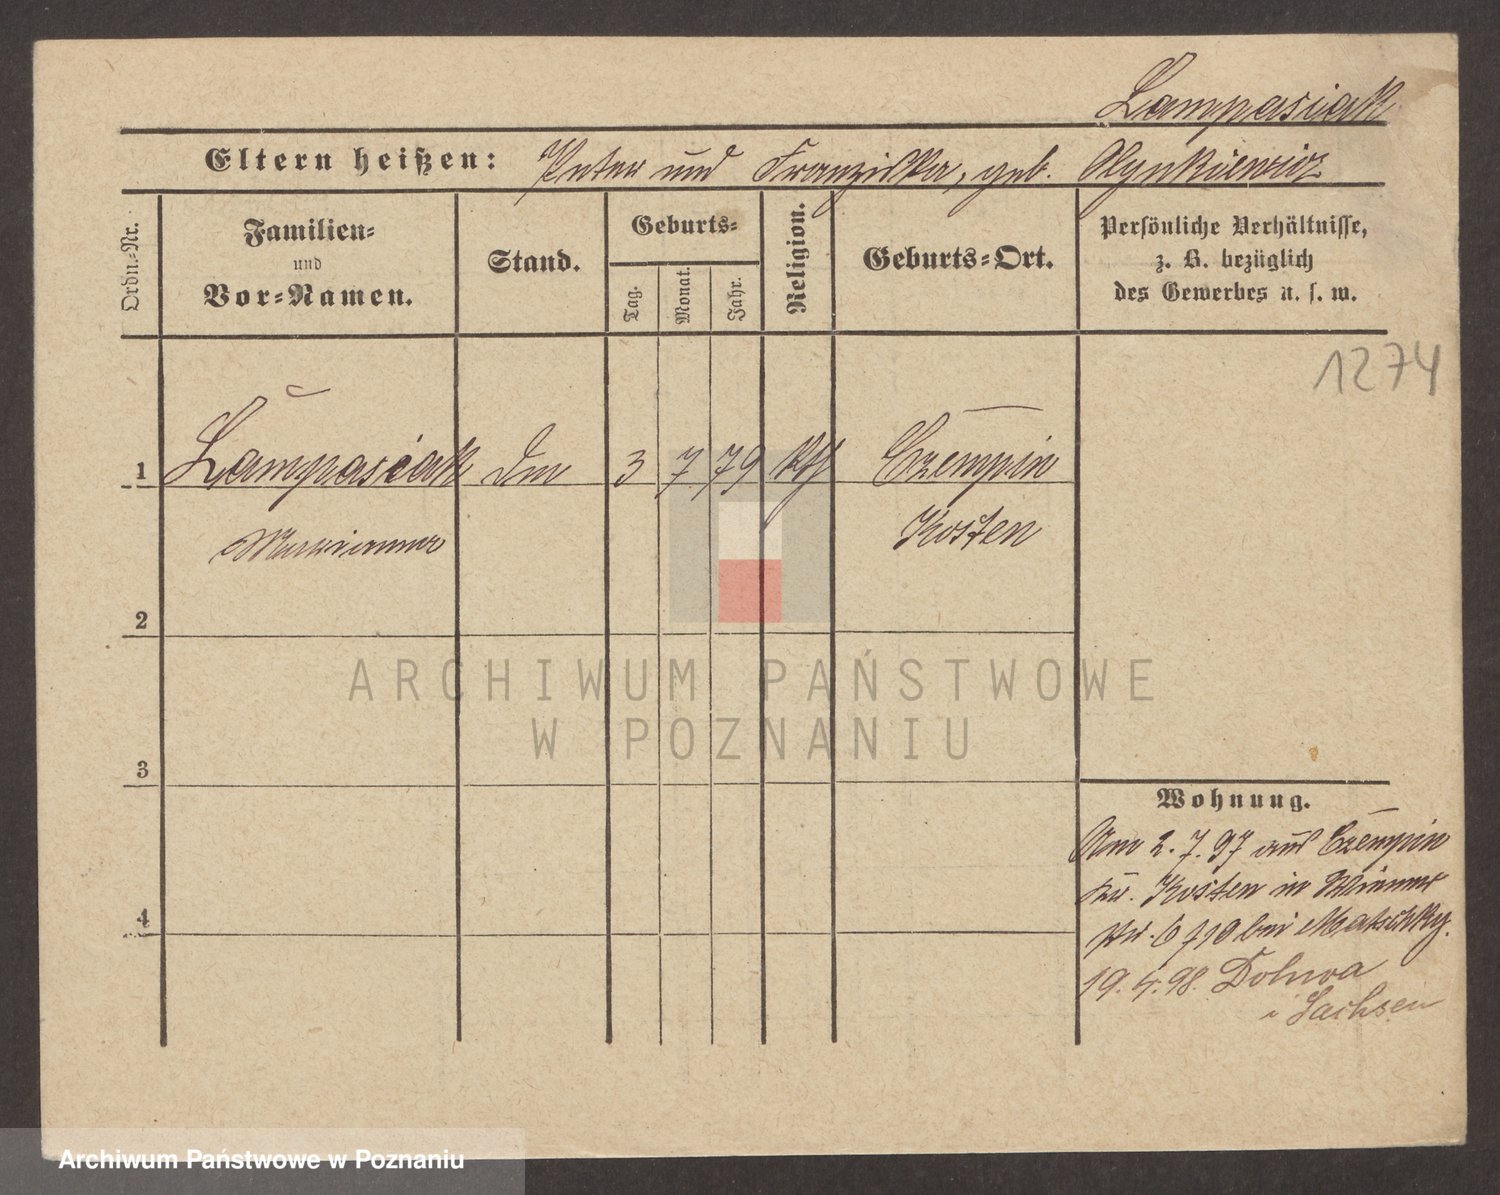 Lampasiak
Eltern heißen: Peter und Franziska, geb. Olynkiewicz
Ordn.-Nr.
Familien-
und
Vor-Namen.
Stand.
Geburts-
Tag.
Monat.
Jahr.
Religion.
Geburts-Ort.
Persönliche Verhältnisse,
z. B. bezüglich
des Gewerbes u. s. w.
1274
1 Lampasiak 3 7 79 kth Czempin
Marianna Kosten
2
3
4
Wohnung.
Am 2. 7. 97 aus Czempin
Kr. Kosten in
bei Matschky.
19. 4. 98.
i Sachsen
ARCHIWUM PAŃSTWOWE
W POZNANIU
Archiwum Państwowe w Poznaniu